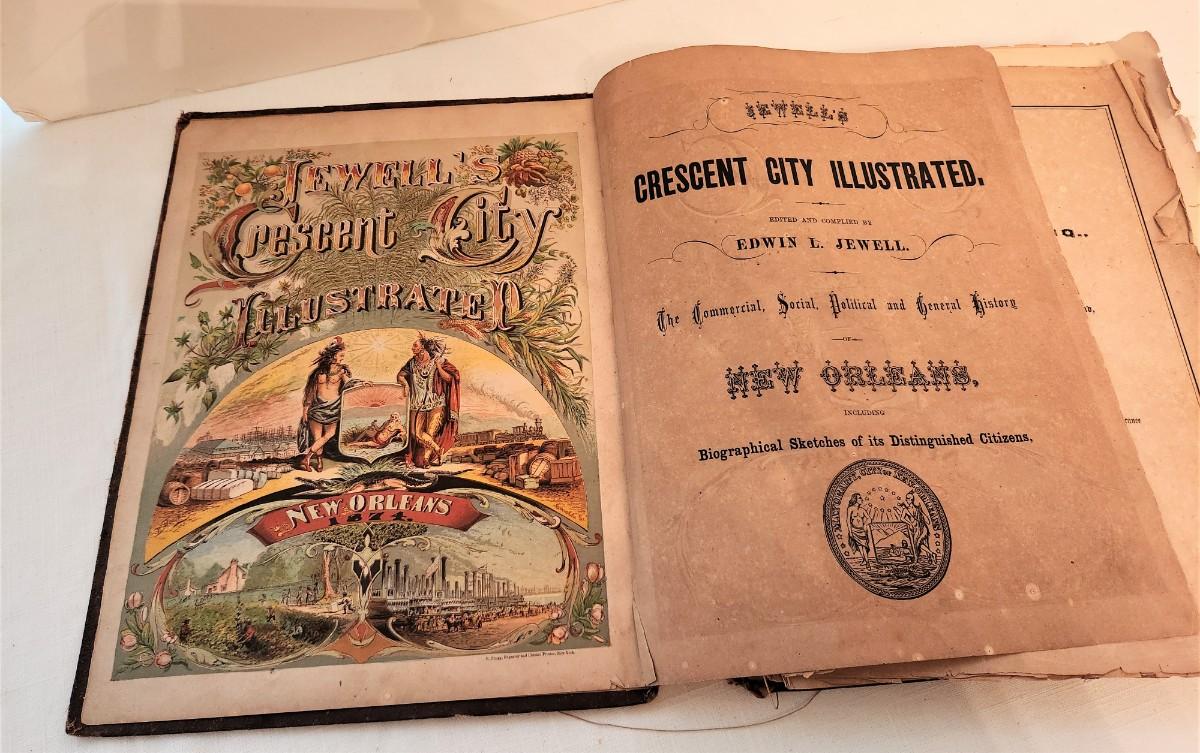 JEWELL'S
Crescent City
ILLUSTRATED
NEW ORLEANS
1874.
JEWELL'S
CRESCENT CITY ILLUSTRATED.
EDITED AND COMPLIED BY
EDWIN L. JEWELL.
The Commercial, Social, Political and General History
—OF—
NEW ORLEANS,
INCLUDING
Biographical Sketches of its Distinguished Citizens,
CITY OF NEW ORLEANS
Q.,